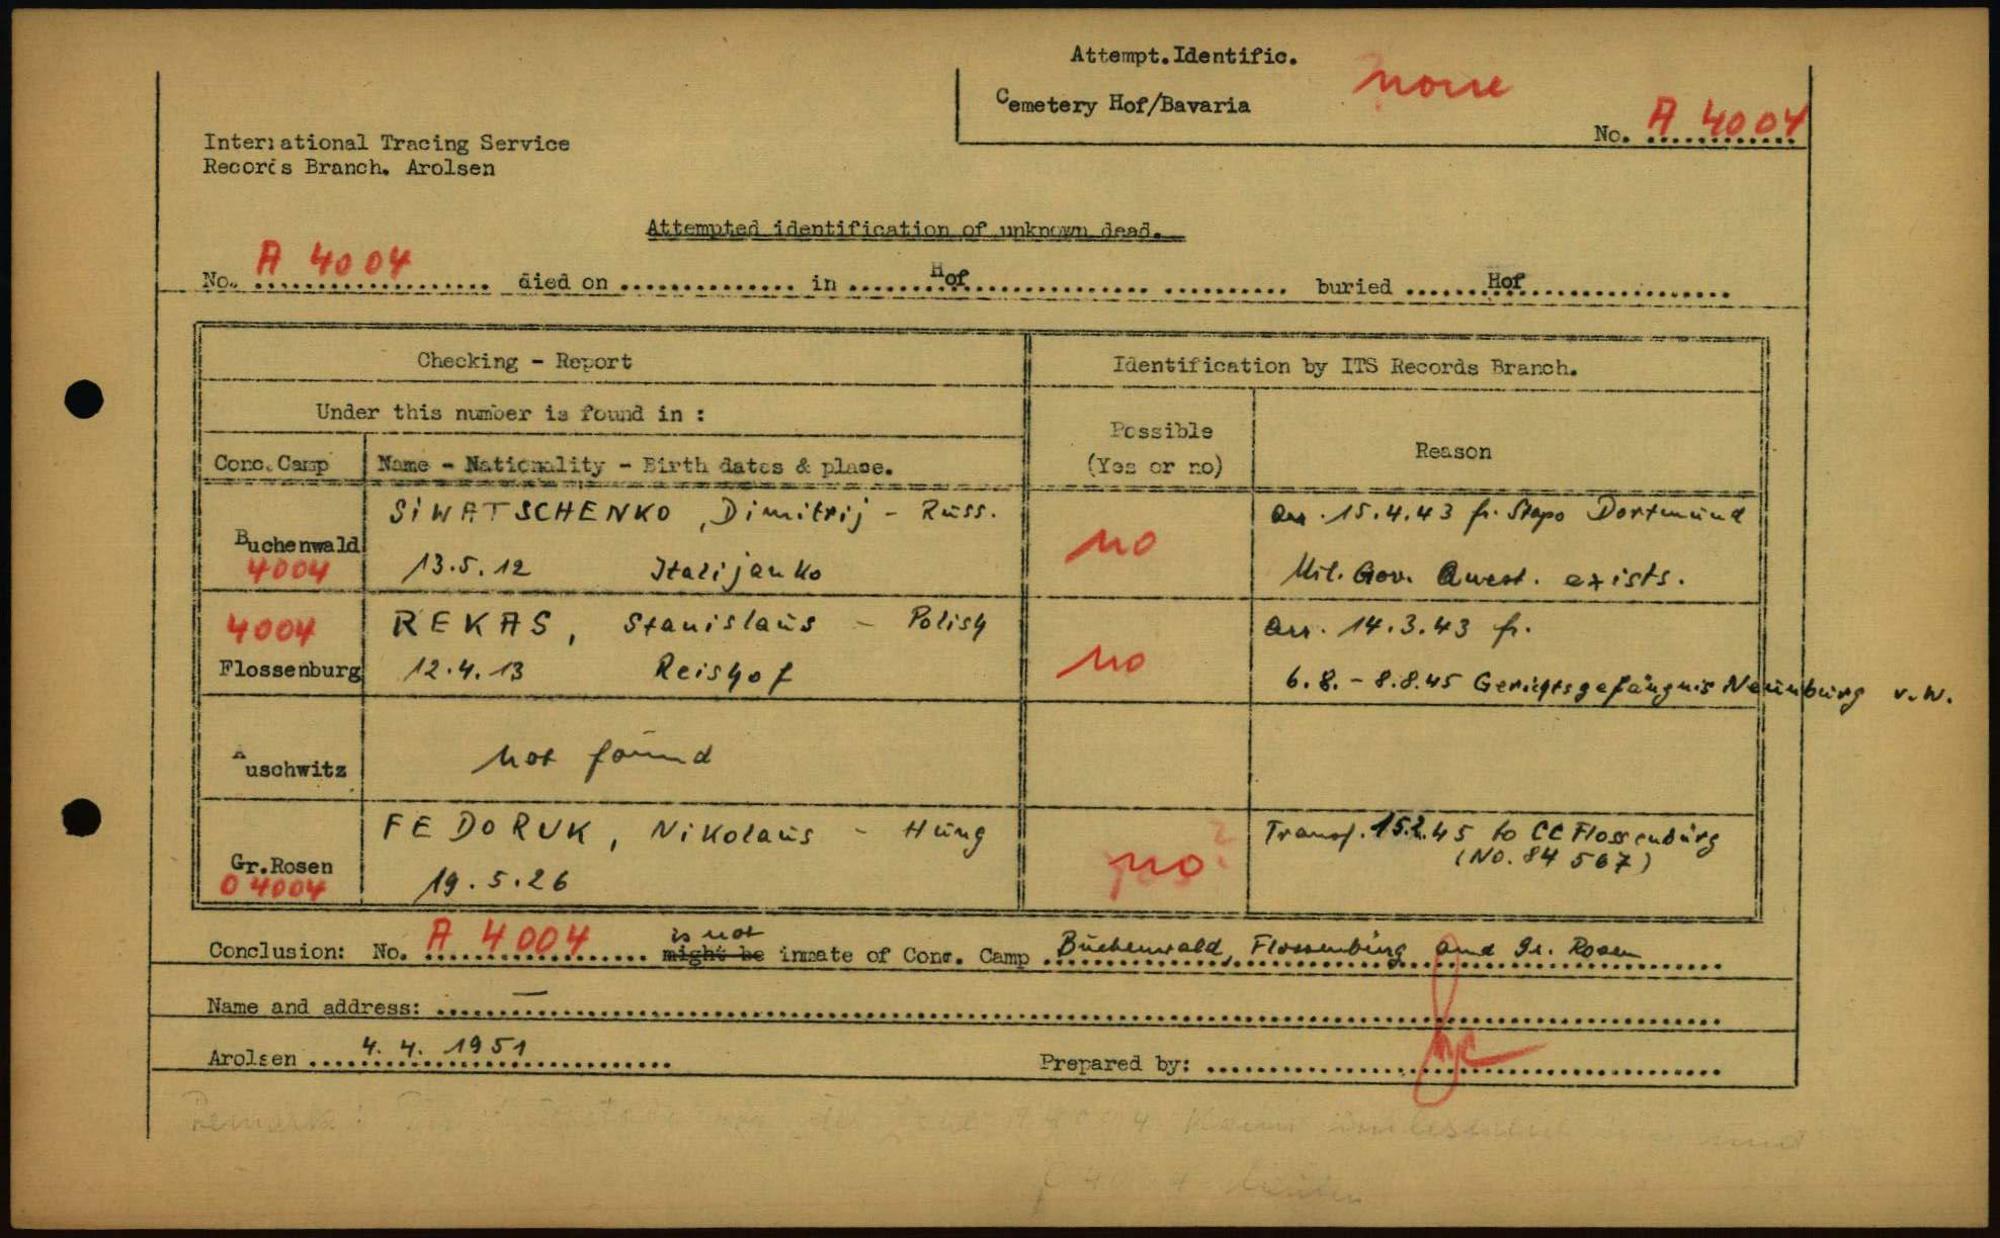 Attempt.Identific.
none
Cemetery Hof/Bavaria
No. A 4004
International Tracing Service
Records Branch. Arolsen
Attempted identification of unknown dead.
No. A 4004 died on .............. in ........Hof.............. .......... buried .......Hof.................
Checking - Report
Identification by ITS Records Branch.
Under this number is found in :
Conc.Camp
Name - Nationality - Birth dates & place.
Possible
(Yes or no)
Reason
Buchenwald
4004
SIWATSCHENKO, Dimitrij - Russ.
13.5.12 Italijanko
no
arr. 15.4.43 fr. Stapo Dortmund
Mil. Gov. Quest. exists.
4004
Flossenburg
REKAS, Stanislaus - Polish
12.4.13 Reishof
no
arr. 14.3.43 fr.
6.8. - 8.8.45 Gerichtsgefängnis Neunburg v.W.
Auschwitz
not found
Gr.Rosen
O 4004
FEDORUK, Nikolaus - Hung
19.5.26
no ?
Transf. 15.2.45 to CC Flossenbürg
(No. 84 567)
Conclusion: No. A 4004 might be is not inmate of Conc. Camp Buchenwald, Flossenbürg and Gr. Rosen
Name and address: —
Arolsen 4. 4. 1951
Prepared by:
Remark: